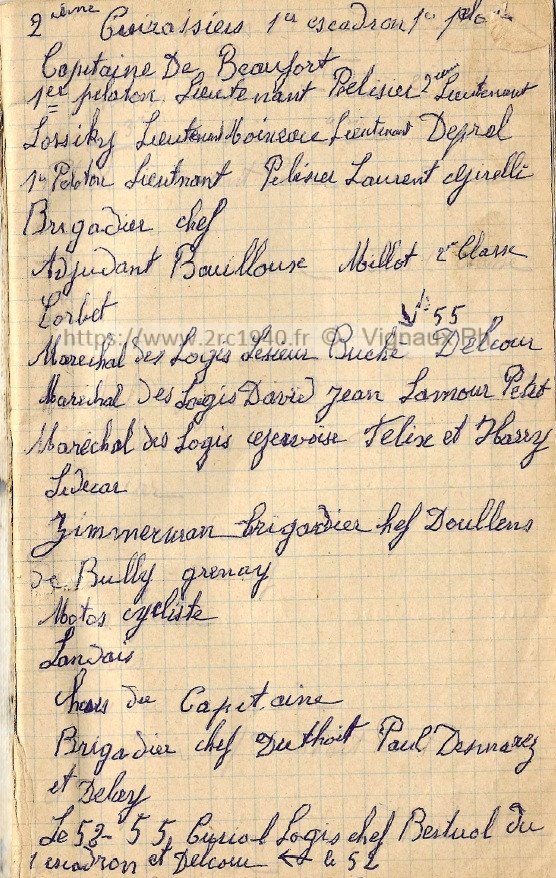 2ième Cuirassiers 1er escadron 1er peloton
Capitaine De Beaufort
1er peloton Lieutenant Pélisier 2ième Lieutenant
Lossiky Lieutenant Moineau Lieutenant Deprol
1er Peloton Lieutnant Pelisier Laurent
Brigadier chef
Adjudant Bouillouse Millot 2e Classe
Corbet
55
https://www.2rc1940.fr © Vignaux Ph.
Maréchal des Logis Lesieur Buché Delcour
Marechal des Logis David Jean Lamour Petit
Maréchal des Logis Gervoise Felix et Harry
Sidecar
Zimmerman brigardier chef Doullens
de Bully grenay
Motos cycliste
Landais
Chars du Capitaine
Brigadier chef Duthoit Paul Desmarez
et Delcey
Le 52- 55, Logis chef Bestuol du
1 escadron et Delcour ↔ le 52